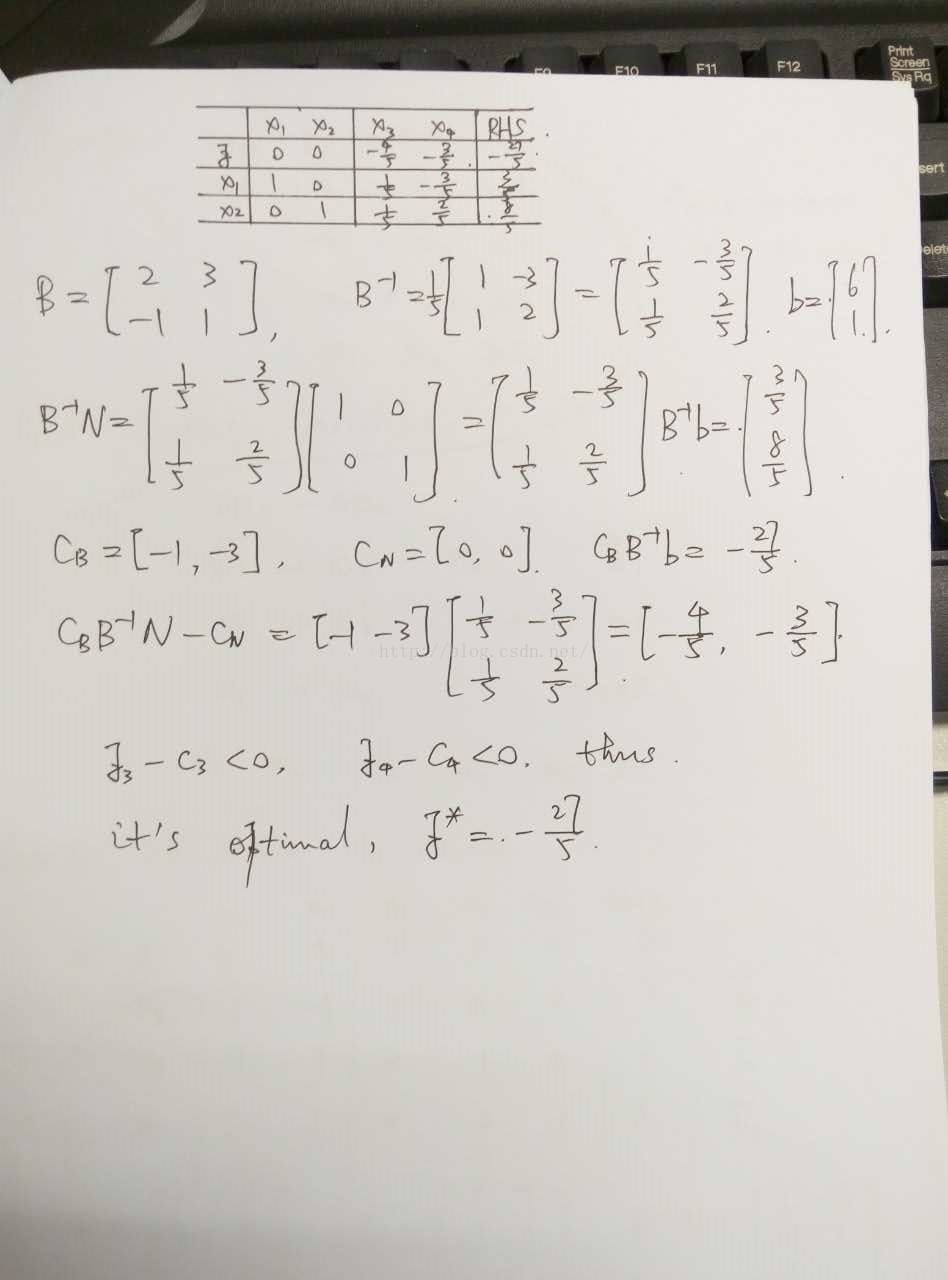 Print
Screen
SysRq
F9 F10 F11 F12
x₁ x₂ x₃ x₄ RHS
z 0 0 -4/5 -3/5 -27/5
x₁ 1 0 1/5 -3/5 3/5
x₂ 0 1 1/5 2/5 8/5
B = [2 3; -1 1], B⁻¹ = 1/5 [1 -3; 1 2] = [1/5 -3/5; 1/5 2/5]. b = [6; 1].
B⁻¹N = [1/5 -3/5; 1/5 2/5][1 0; 0 1] = [1/5 -3/5; 1/5 2/5] B⁻¹b = [3/5; 8/5].
C_B = [-1, -3], C_N = [0, 0]. C_B B⁻¹b = -27/5.
C_B B⁻¹N - C_N = [-1 -3][1/5 -3/5; 1/5 2/5] = [-4/5, -3/5].
http://blog.csdn.net/
z₃ - C₃ < 0, z₄ - C₄ < 0. thus.
it's optimal, z* = -27/5.